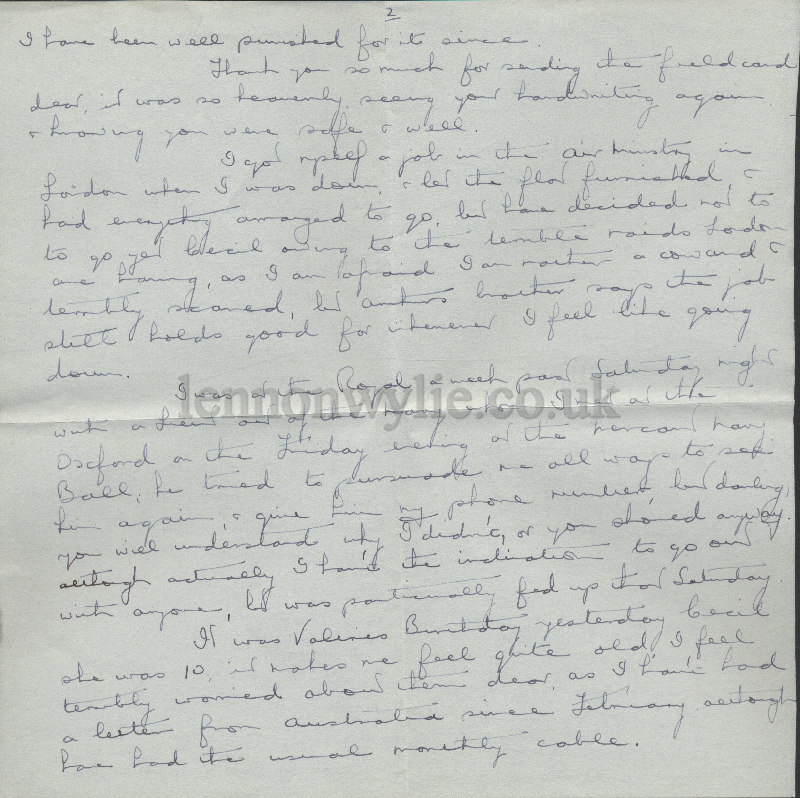 2
I have been well punished for it since.
Thank you so much for sending the field card
dear, it was so heavenly seeing your handwriting again
& knowing you were safe & well.
I got myself a job in the Air Ministry in
London when I was down, & let the flat furnished, &
had everything arranged to go, but have decided not to
to go yet Cecil owing to the terrible raids London
are having, as I am afraid I am rather a coward &
terribly scared, but brother says the job
still holds good for whenever I feel like going
down.
I was at the Royal a week past Saturday night
with a Lieut out of the navy whom I met at the
Oxford on the Friday evening at the merchant navy
Ball, he tried to pursuade me all ways to see
him again, & give him my phone number, but darling,
you will understand why I didn't, or you should anyway.
although actually I haven't the inclination to go out
with anyone, but was particually fed up that Saturday.
It was Valeries Birthday yesterday Cecil
she was 10, it makes me feel quite old, I feel
terribly worried about them dear, as I haven't had
a letter from Australia since February although
have had the usual monthly cable.
lennonwylie.co.uk